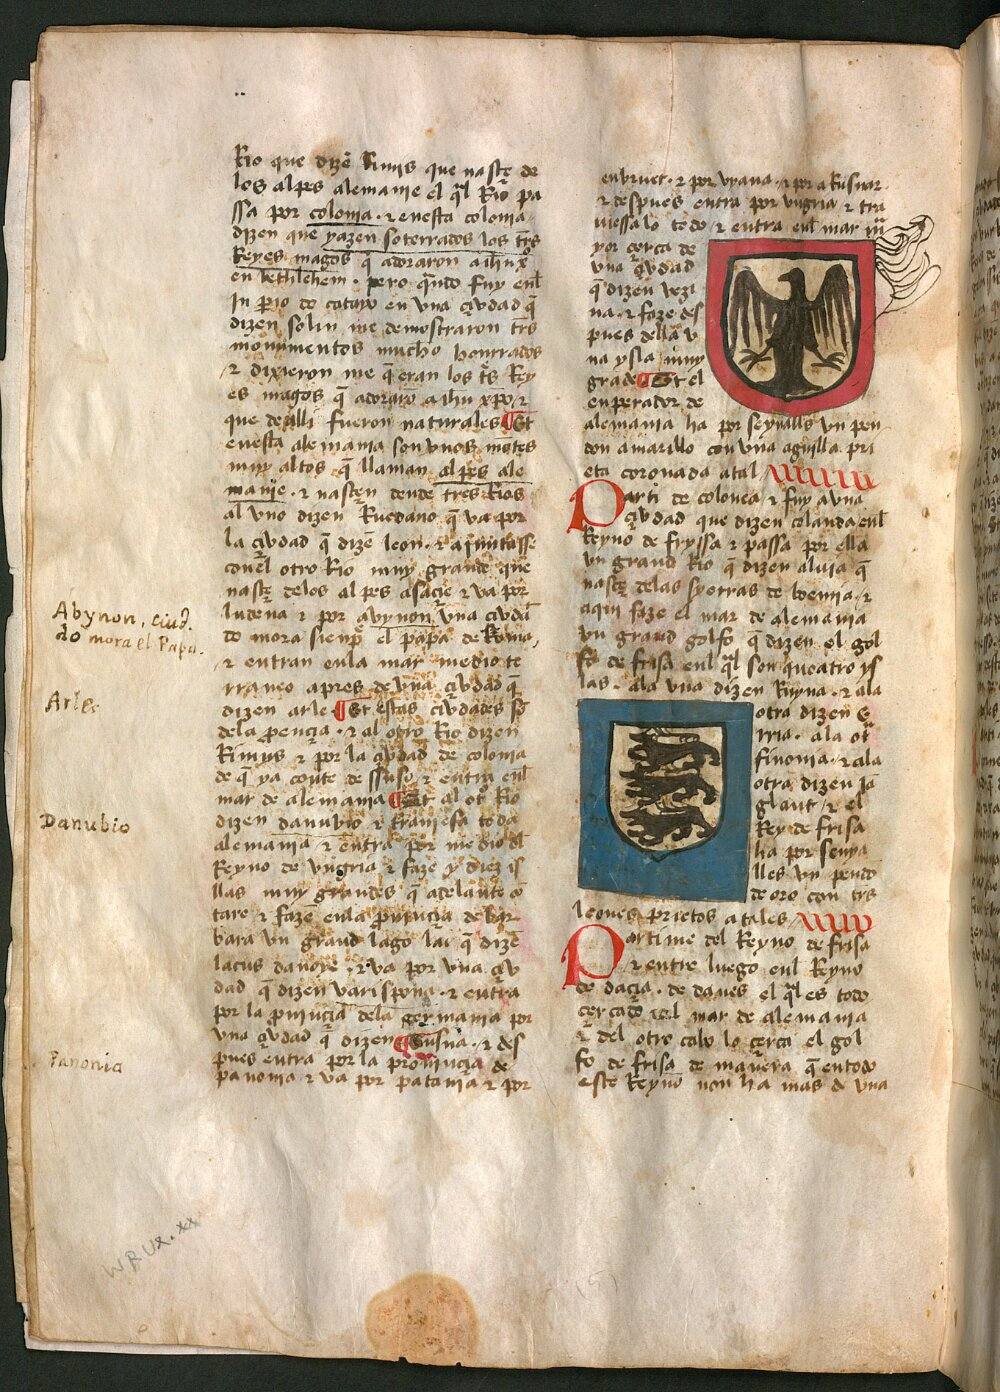 Rio que dizē Rinus que nasçe de
los alpes alemanie el q̄l Rio pa
ssa por colonia · ⁊ enesta colonia
dizen que yazen soterrados los tr̄s
Reyes magos q̄ adoraron a ihū x̄
en bethlehem · pero quādo fuy enl̄
Inperio de catayo en una çibdad q̄
dizen solin me demostraron tr̄s
monumentos mucho honrrados
⁊ dixieron me q̄ eran los tr̄s Rey
es magos q̄ adorarō a ihū xp̄o ⁊
que de alli fueron naturales ¶ Et
enesta alemania son unos mōtes
muy altos q̄ llaman alpes ale
manie · ⁊ nasçen dende tres Rios
al uno dizen Ruedano q̄ va por
la çibdad q̄ dizē leon · ⁊ ajuntasse
conel otro Rio muy grande que
nasçe delos alpes asacie ⁊ va por
ludena ⁊ por abynon una çibdat
do mora sienpr̄ el papa de Roma
⁊ entran enla mar medio te
rraneo apres de una çibdad q̄
dizen arle ¶ Et estas çibdades sō
dela proençia · ⁊ al otro Rio dizen
Rinus ⁊ por la çibdad de colonia
de q̄ ya conte de ssuso ⁊ entra enl̄
mar de alemania ¶ Et al otr̄ Rio
dizen danubio ⁊ traviesa toda
alemania ⁊ entra por medio dl̄
Reyno de ungria ⁊ faze y diez is
llas muy grandes q̄ adelante cō
tare ⁊ faze enla prouinçia de bar
bara un grand lago lai q̄ dizē
lacus danoye · ⁊ va por una çib
dad q̄ dizen varispona · ⁊ entra
por la prouinçia dela germania por
una çibdad q̄ dizen ¶ Susna · ⁊ des
pues entra por la prouinçia de
panonia ⁊ va por patania ⁊ por
Abynon, ciud.
do mora el Papa.
Arles
Danubio
Panonia
enuruet · ⁊ por urana · ⁊ por a Rusnar
⁊ despues entra por ungria ⁊ tra
uiessa lo todo ⁊ entra enl̄ mar m̄
yor çerca de
una çibdad
q̄ dizen vezi
na · ⁊ faze des
pues della u
na ysla muy
grade ¶ Et el
enperador de
alemania ha por seynalls un pen
don amarillo con una aguilla pri
eta coronada atal
Parti de colonea ⁊ fuy a una
çibdad que dizen colanda enl̄
Reyno de fryssa ⁊ passa por ella
un grand Rio q̄ dizen aluia q̄
nasçe delas syerras de boemia ⁊
aqui faze el mar de alemania
un grand golfo q̄ dizen el gol
fo de frisa enl̄ q̄l son queatro ys
las · ala una dizen Ruyna · ⁊ ala
otra dizen e
rria · ala otr̄
finonia · ⁊ ala
otra dizen ja
glant · ⁊ el
Rey de frisa
ha por senya
lles un pendō
de oro con trs
leones prietos atales
Partime del Reyno de frisa
⁊ entre luego enl̄ Reyno
de daçia · de danes el q̄l es todo
çercado del mar de alemania
⁊ del otro cabo lo çerca el gol
fo de frisa de manera q̄ en todo
este Reyno non ha mas d una